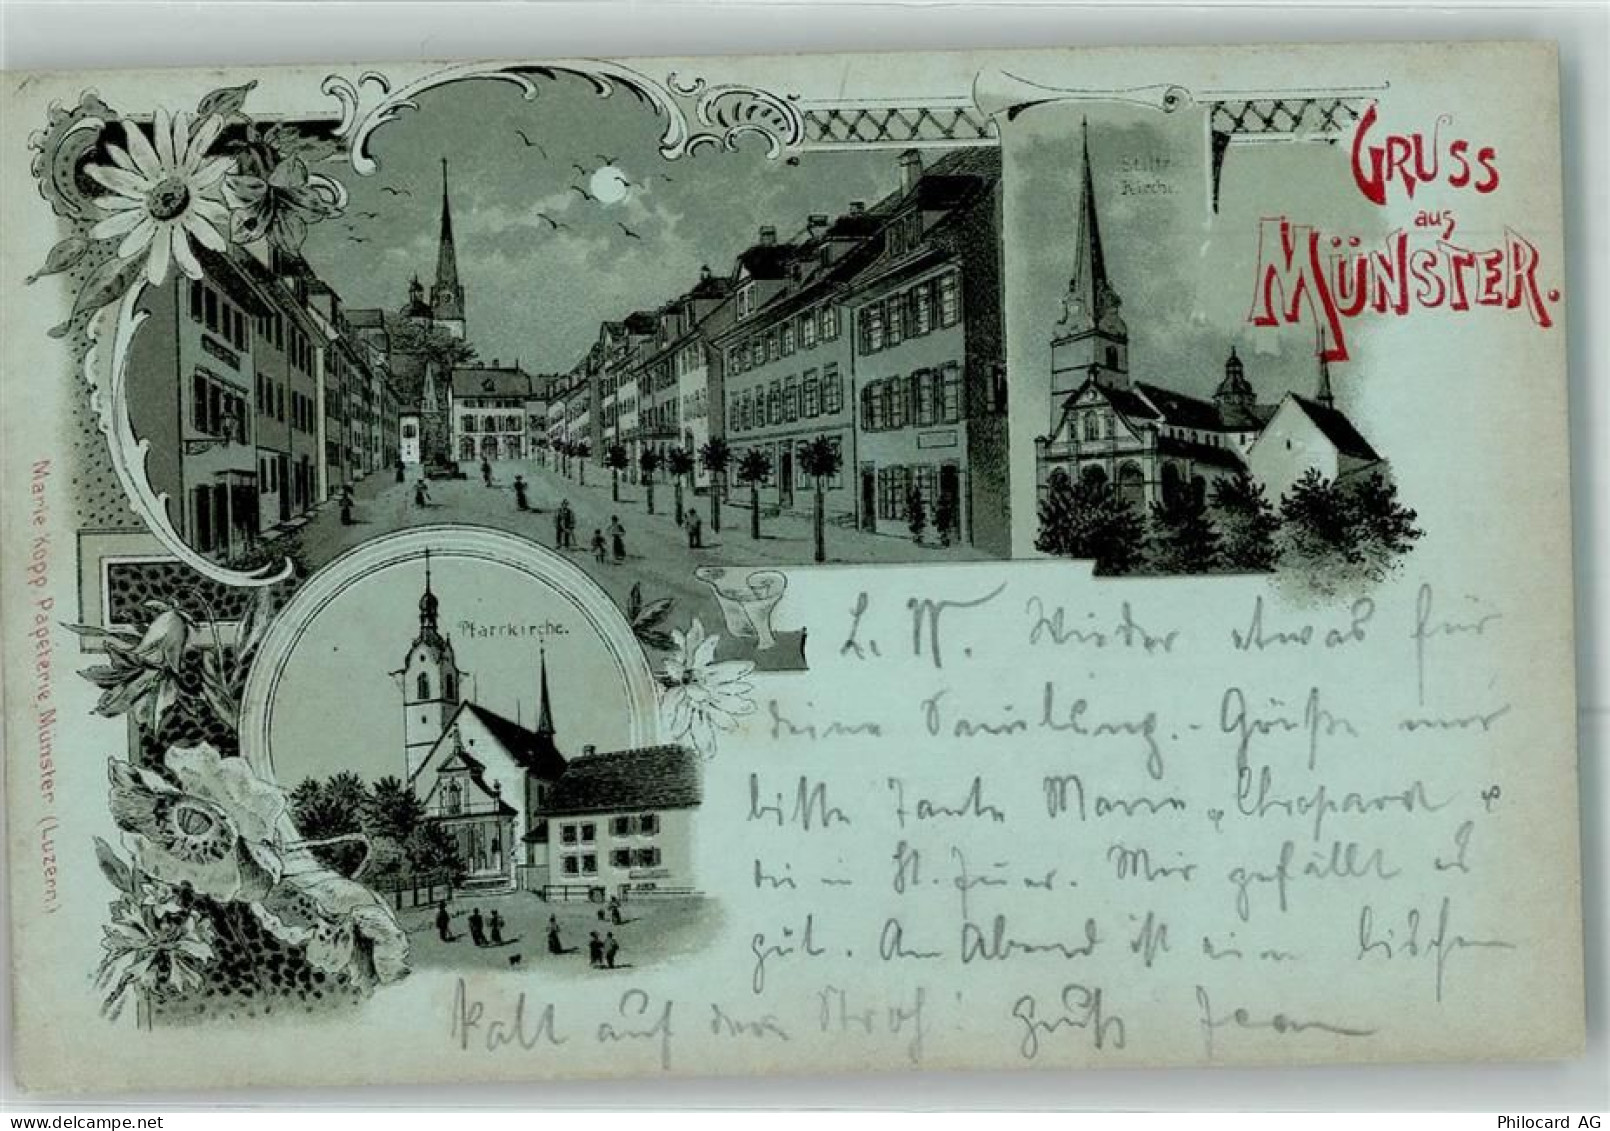 GRUSS
aus
MÜNSTER.
Stifts-
Kirche.
Pfarrkirche.
Marie Kopp Papeterie Münster (Luzern)
L. N. Wieder etwas für
deine Sammlung. - Grüße mir
bitte Tante Marie
die in St. Mir gefällt es
gut. Am Abend ist ein bischen
kalt auf dem Stroh! Gruß Jean
Philocard AG